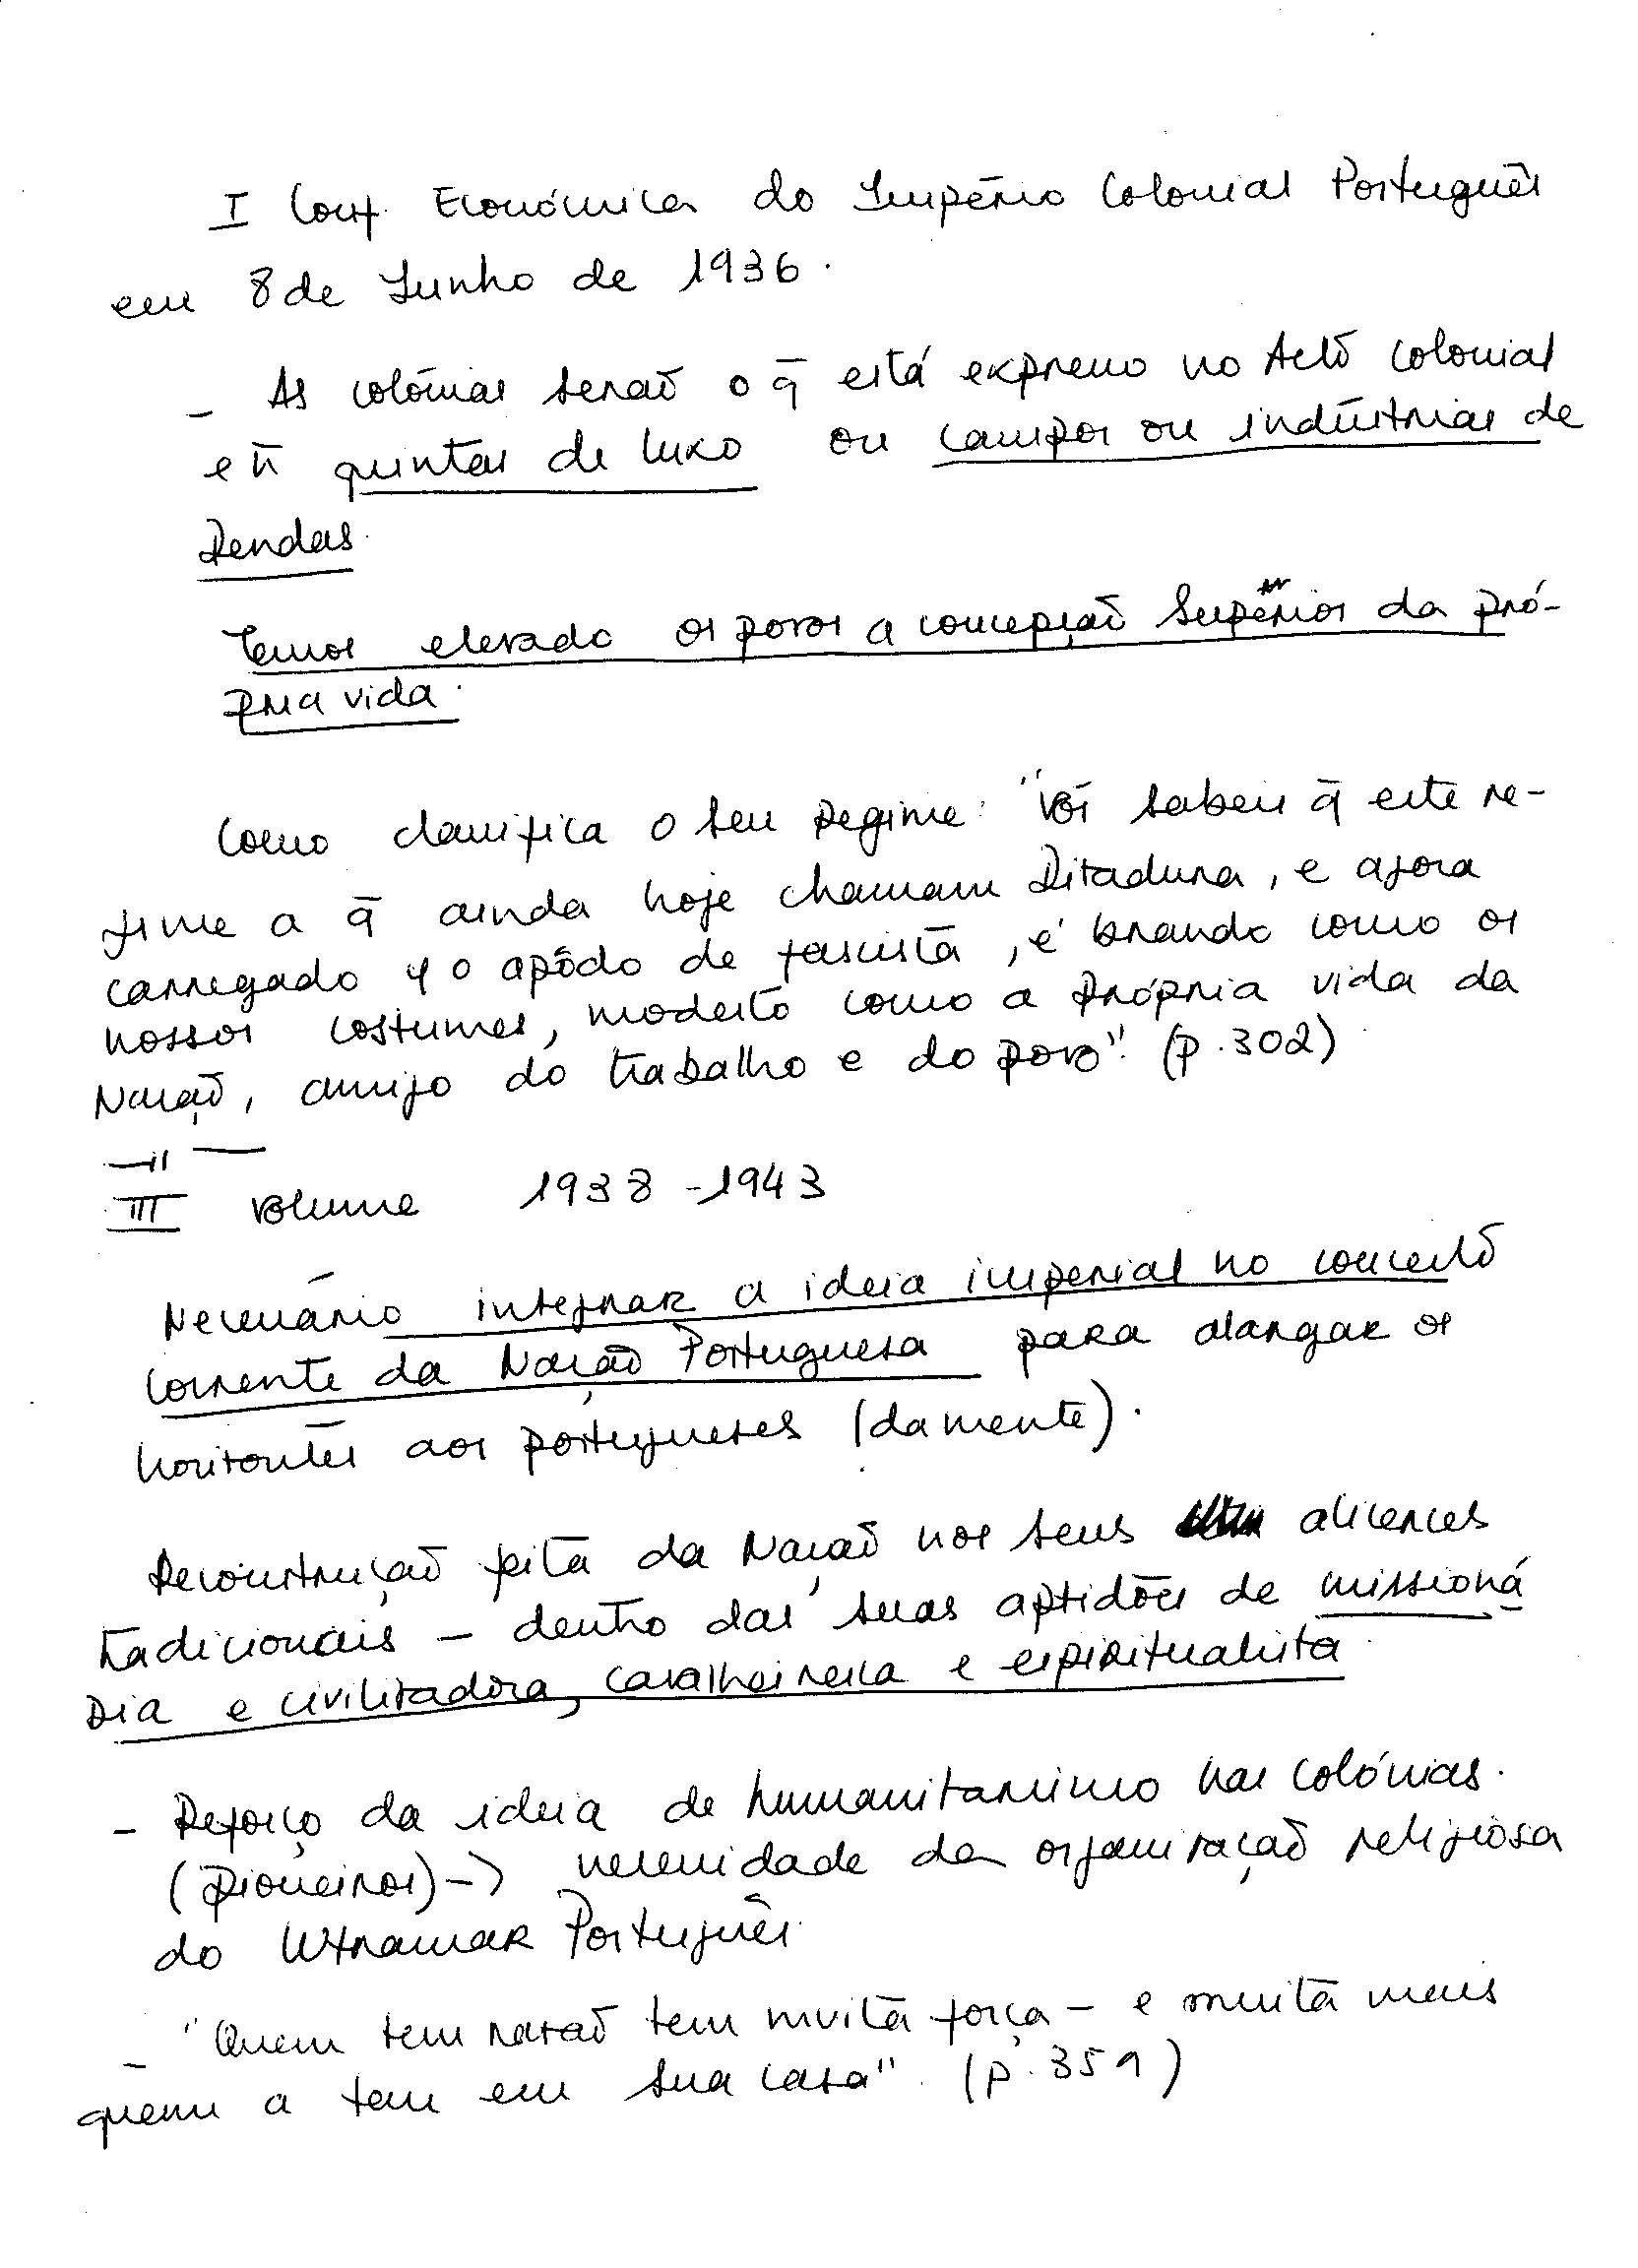 I Conf. Económica do Império Colonial Português
em 8 de Junho de 1936.
- As colónias serão o q̄ está expresso no Acto Colonial
e ñ quintas de luxo ou campos ou indústrias de
Rendas.
Temos elevado os povos a concepção Superior da pró-
pria vida.
Como classifica o seu Regime: "Vós sabeis q̄ este re-
gime a q̄ ainda hoje chamam Ditadura, e agora
carregado c/ o apôdo de fascista, é brando como os
nossos costumes, modesto como a própria vida da
Nação, amigo do trabalho e do povo". (p. 302)
—"—
III volume 1938-1943
Necessário integrar a ideia imperial no conceito
corrente da Nação Portuguesa para alargar os
horizontes aos portugueses (da mente).
Reconstrução feita da Nação nos seus alicerces
tradicionais – dentro das suas aptidões de missioná
ria e civilizadora, cavalheiresca e espiritualista.
- Reforço da ideia de humanitarismo nas colónias.
(pioneiros) -> necessidade da organização religiosa
do Ultramar Português.
- "Quem tem razão tem muita força – e muita mais
quem a tem em sua casa". (p. 359)